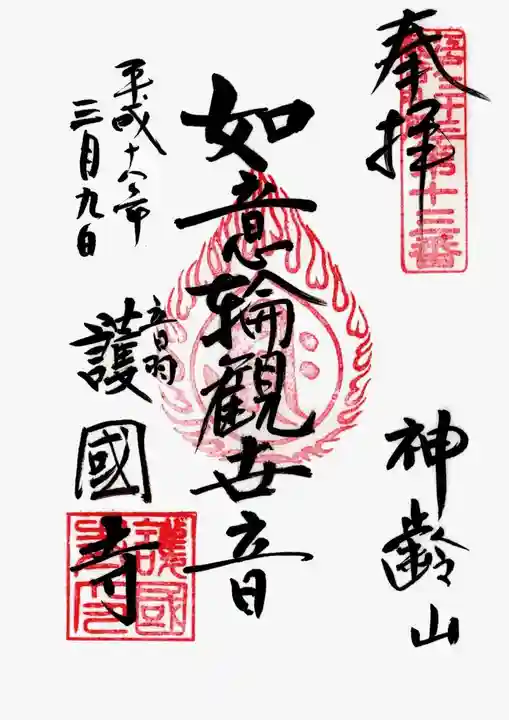 奉拝
第十三番
神齢山
如意輪観世音
平成十八年
三月九日
音羽
護國寺